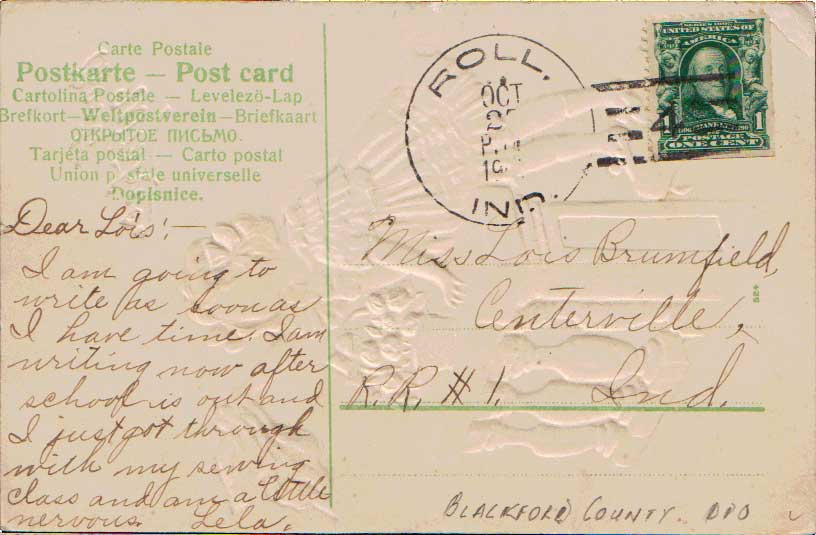 Carte Postale
Postkarte — Post card
Cartolina Postale — Levelezö-Lap
Brefkort—Weltpostverein—Briefkaart
ОТКРЫТОЕ ПИСЬМО.
Tarjéta postal — Carto postal
Union postale universelle
Dopisnice.
ROLL,
OCT
IND.
SERIES 1902
UNITED STATES OF
AMERICA
4
1 1
POSTAGE
ONE CENT
Dear Lois:—
I am going to
write as soon as
I have time. I am
writing now after
school is out and
I just got through
with my sewing
class and am a little
nervous. Lela.
Miss Lois Brumfield,
Centerville,
R.R. #1. Ind.
BLACKFORD COUNTY. DPO